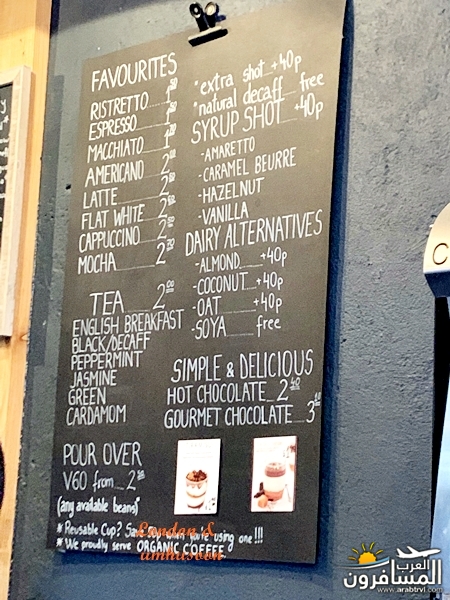 FAVOURITES
RISTRETTO 1.50
ESPRESSO 1.50
MACCHIATO 1
AMERICANO 2
LATTE 2
FLAT WHITE 2
CAPPUCCINO 2
MOCHA 2
TEA 2.00
ENGLISH BREAKFAST
BLACK/DECAFF
PEPPERMINT
JASMINE
GREEN
CARDAMOM
POUR OVER
V60 from 2
(any available beans)
*extra shot +40p
*natural decaff free
SYRUP SHOT +40p
-AMARETTO
-CARAMEL BEURRE
-HAZELNUT
-VANILLA
DAIRY ALTERNATIVES
-ALMOND +40p
-COCONUT +40p
-OAT +40p
-SOYA free
SIMPLE & DELICIOUS
HOT CHOCOLATE 2.40
GOURMET CHOCOLATE 3
* Reusable Cup? when you're using one!!!
* We proudly serve ORGANIC COFFEE
London &
C
العرب
المسافرون
www.arabtrvl.com